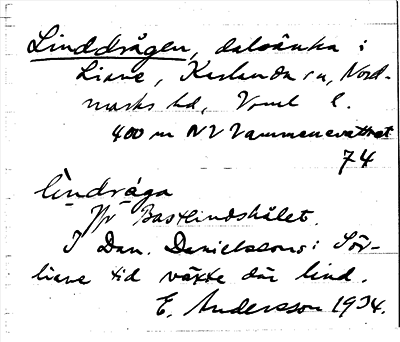 Linddrågen, dalsänka i
Liane, Karlanda sn, Nord-
marks hd, Vrml l.
400 m NV Vammenevattnet
74
lindråga
Jfr Bastlindshålet.
I Dan. Danielssons i Sör-
liane tid växte där lind.
E. Andersson 1934.